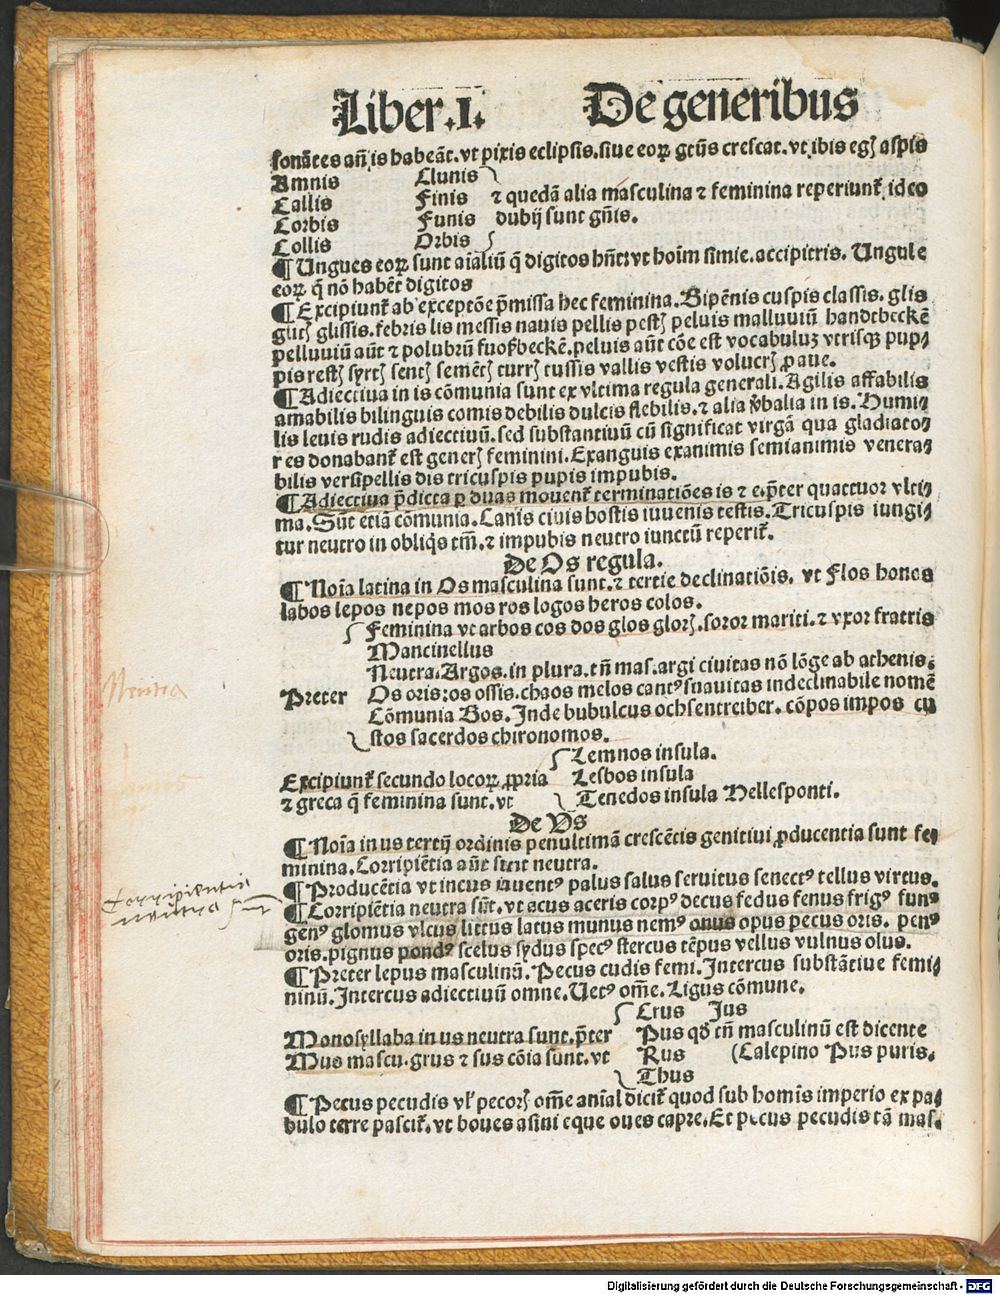 Liber.I. De generibus
sonātes añ is habeāt.vt pixis eclipsis.siue eoꝝ gtῡs crescat.vt ibis egꝭ aspis
Amnis Clunis
Callis Finis ⁊ quedā alia masculina ⁊ feminina reperiunt᷑.ideo
Corbis Funis dubij sunt gñis.
Collis Orbis
¶ Ungues eoꝝ sunt aīaliū q̄ digitos hñt:vt hoīm simie.accipitris. Ungule
eoꝝ q̄ nō habēt digitos
¶ Excipiunt᷑ ab exceptōe p̄missa hec feminina.Bipēnis cuspis classis.glis
glitꝭ glissis.febris lis messis nauis pellis pestꝭ peluis malluuiū handtbeckē
pelluuiū aūt ⁊ polubrū fuoßbeckē.peluis aūt cōe est vocabuluꝫ vtrisqꝫ pup⸗
pis restꝭ syrtꝭ sentꝭ semētꝭ turrꝭ tussis vallis vestis volucrꝭ ꝓ aue.
¶ Adiectiua in is cōmunia sunt ex vltima regula generali.Agilis affabilis
amabilis bilinguis comis debilis dulcis flebilis.⁊ alia v̄balia in is.Humi⸗
lis leuis rudis adiectiuū.sed substantiuū cū significat virgā qua gladiato⸗
res donabant᷑ est generꝭ feminini.Exanguis exanimis semianimis venera⸗
bilis versipellis dis tricuspis pupis impubis.
¶ Adiectiua p̄dicta ꝑ duas mouent᷑ terminatiōes is ⁊ e.p̄ter quattuor vlti⸗
ma.Sūt etiā cōmunia.Canis ciuis hostis iuuenis testis.Tricuspis iungi⸗
tur neutro in obliq̄s tm̄.⁊ impubis neutro iunctū reperit᷑.
De Os regula.
¶ Noīa latina in Os masculina sunt.⁊ tertie declinatiōis. vt Flos honos
labos lepos nepos mos ros logos heros colos.
Feminina vt arbos cos dos glos glorꝭ.soror mariti.⁊ vxor fratris
Mancinellus
Neutra.Argos.in plura.tñ mas.argi ciuitas nō lōge ab athenis.
Preter Os oris:os ossis.chaos melos cantꝰ suauitas indeclinabile nomē
Cōmunia Bos.Inde bubulcus ochsentreiber.cōpos impos cu
stos sacerdos chironomos.
Lemnos insula.
Excipiunt᷑ secundo locoꝝ ꝓpria Lesbos insula
⁊ greca q̄ feminina sunt.vt Tenedos insula Hellesponti.
De Us
¶ Noīa in us tertij ordinis penultimā crescētis genitiui ꝓducentia sunt fe⸗
minina.Corripiētia aūt sunt neutra.
¶ Producētia vt incus iuuentꝰ palus salus seruitus senectꝰ tellus virtus.
Corripientia
neutra sunt
¶ Corripiētia neutra sūt.vt acus aceris corpꝰ decus fedus fenus frigꝰ funꝰ
genꝰ glomus vlcus littus latus munus nemꝰ onus opus pecus oris. penꝰ
oris.pignus pondꝰ scelus sydus specꝰ stercus tēpus vellus vulnus olus.
¶ Preter lepus masculinū.Pecus cudis femi.Intercus substātiue femi⸗
ninū.Intercus adiectiuū omne.Uetꝰ om̄e.Ligus cōmune.
Crus Jus
Monosyllaba in us neutra sunt.p̄ter Pus qd̄ tñ masculinū est dicente
Mus mascu.grus ⁊ sus cōia sunt.vt Rus (Calepino Pus puris.
Thus
¶ Pecus pecudis vl᷑ pecorꝭ om̄e anīal dicit᷑ quod sub homīs imperio ex pa⸗
bulo terre pascit᷑.vt boues asini eque oues capre.Et pecus pecudis tā mas.
Digitalisierung gefördert durch die Deutsche Forschungsgemeinschaft - DFG